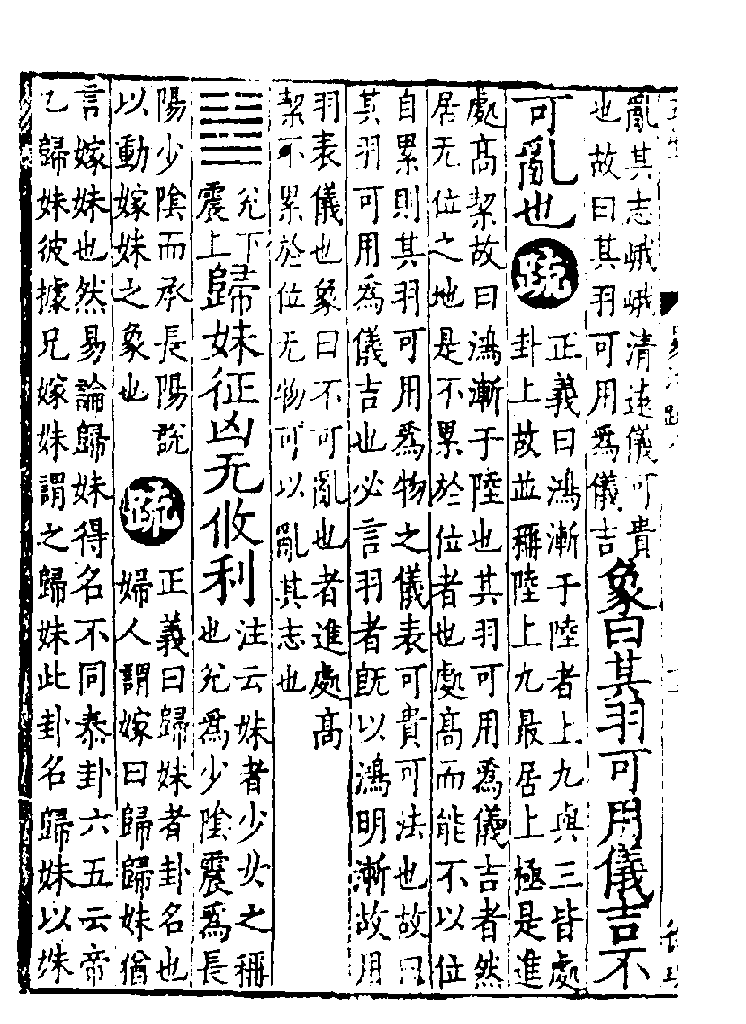 亂其志峨峨清遠儀可貴
也故曰其羽可用爲儀吉
象曰其羽可用儀吉不
可亂也
疏
正義曰鴻漸于陸者上九與三皆處
卦上故並稱陸上九最居上極是進
處高絜故曰鴻漸于陸也其羽可用爲儀吉者然
居无位之地是不累於位者也處高而能不以位
自累則其羽可用爲物之儀表可貴可法也故曰
其羽可用爲儀吉也必言羽者旣以鴻明漸故用
羽表儀也象曰不可亂也者進處高
絜不累於位无物可以亂其志也
䷵
兌下
震上
歸妹征凶无攸利
注云妹者少女之稱
也兌爲少陰震爲長
陽少陰而承長陽說
以動嫁妹之象也
疏
正義曰歸妹者卦名也
婦人謂嫁曰歸歸妹猶
言嫁妹也然易論歸妹得名不同泰卦六五云帝
乙歸妹彼據兄嫁妹謂之歸妹此卦名歸妹以妹